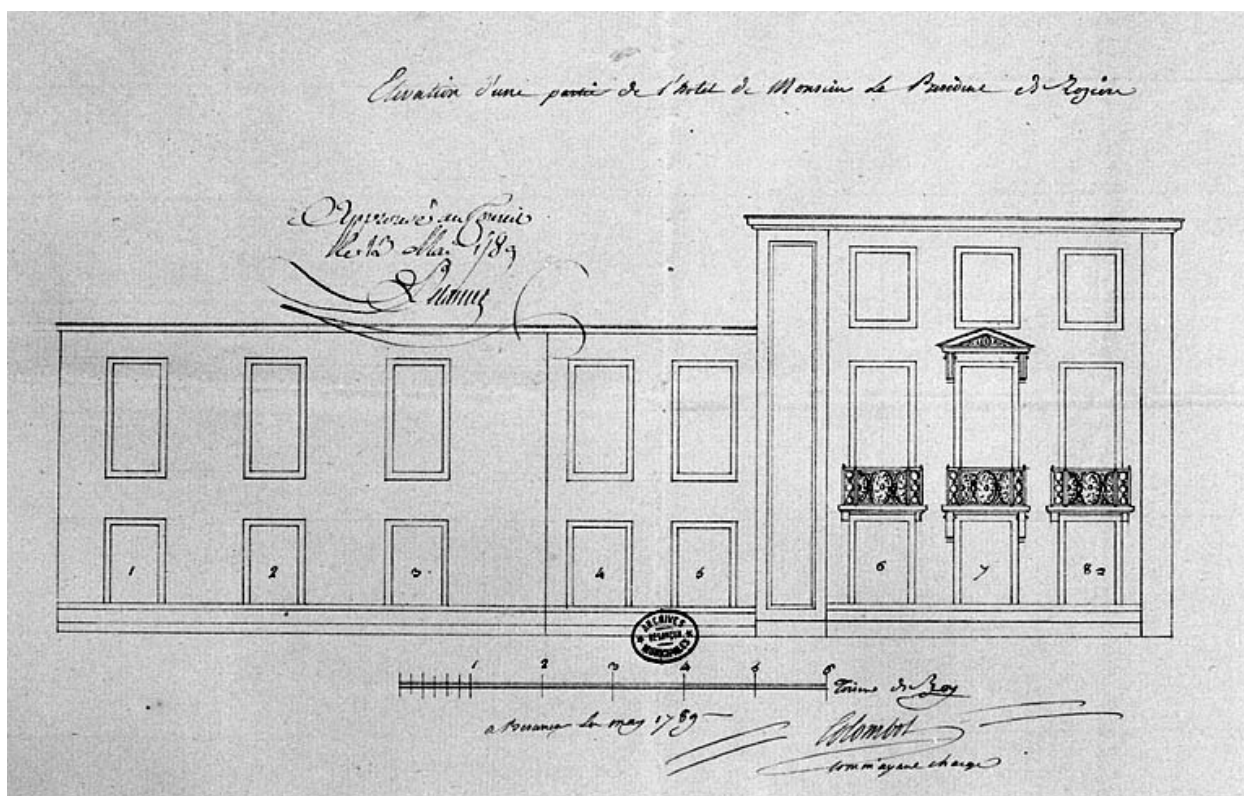 Elevation d'une partie de l'hotel de Monsieur Le Presidene de Rozière
Approuvé au Conseil
le 12 Mai 1789
1 2 3 4 5 6 7 8
ARCHIVES
BESANÇON
MUNICIPALES
1 2 3 4 5 6
Toises de Roy
a Besançon le may 1789
Colombot
comm ayant charge